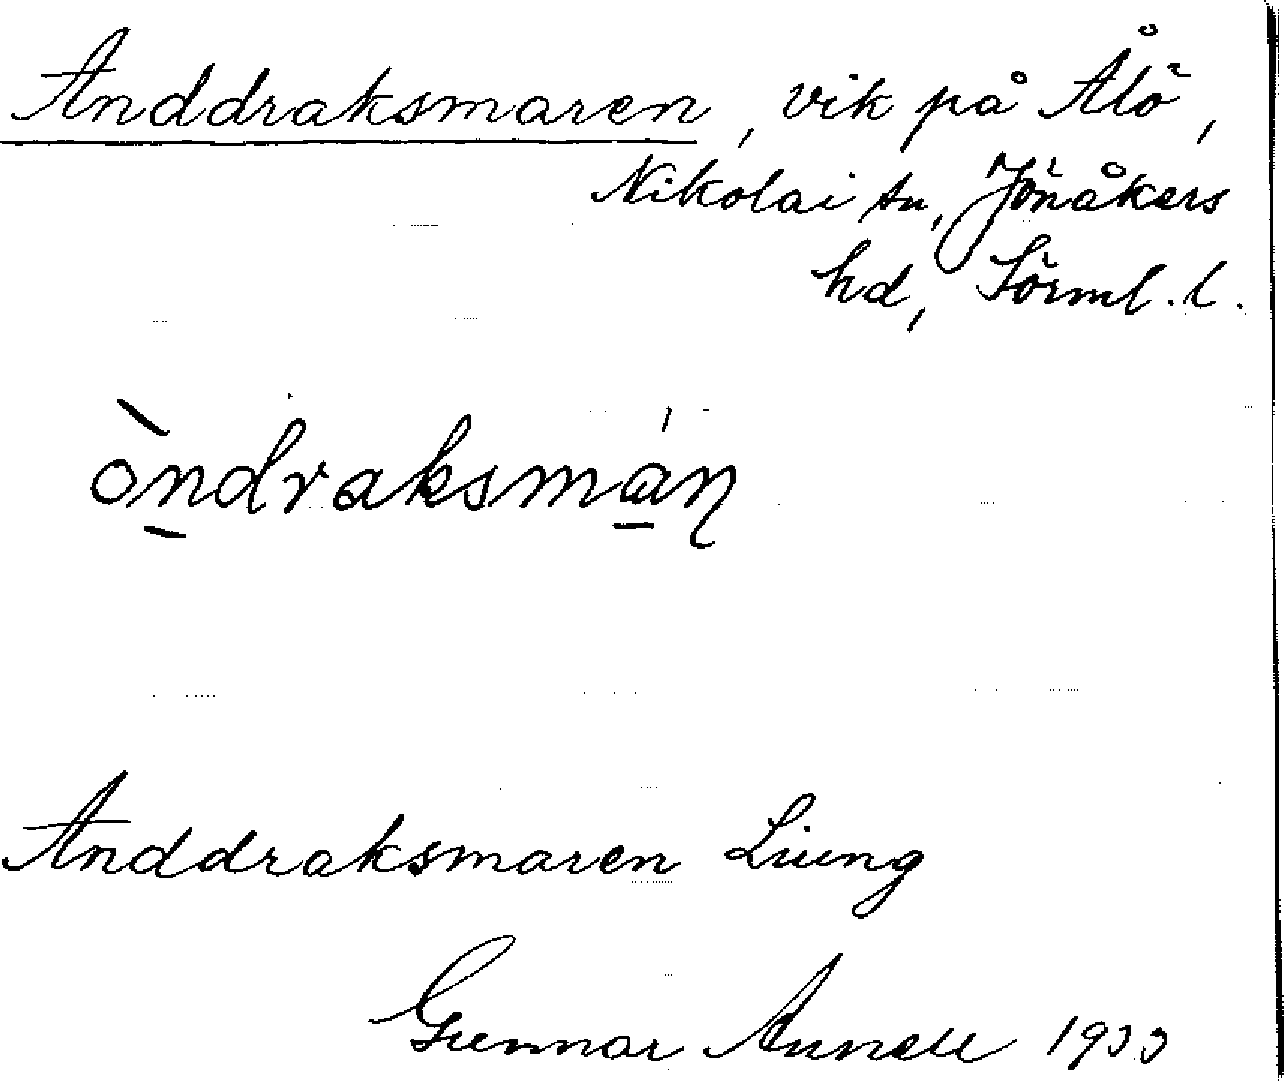 Anddraksmaren, vik på Ålö,
Nikolai sn, Jönåkers
hd, Sörml. l.
òndraksmán
Anddraksmaren Liung
Gunnar Annell 1933